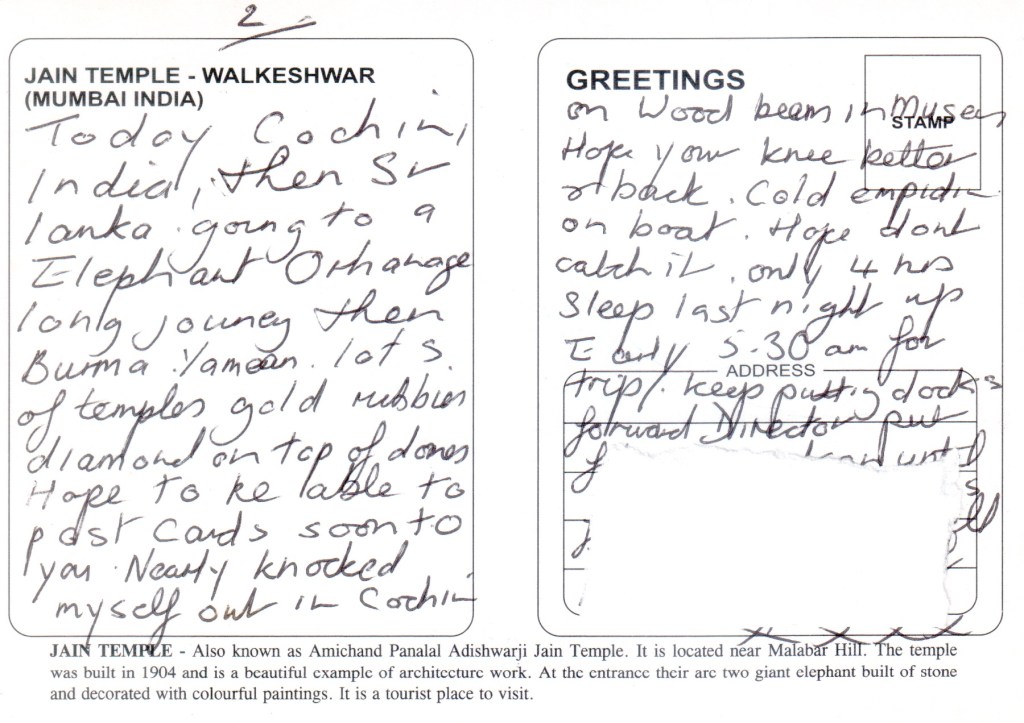 2
JAIN TEMPLE - WALKESHWAR
(MUMBAI INDIA)
Today Cochin,
India, then Sr
lanka. going to a
Elephant Orhanage
long jouney then
Burma Yamean. lots
of temples gold rubbies
diamond on top of domes
Hope to be lable to
post Cards soon to
you. Nearly knocked
myself out in Cochin
GREETINGS
STAMP
on Wood beam in Museum
Hope your knee better
& back. Cold empidic
on boat. Hope dont
catch it. only 4 hrs
Sleep last night up
Early 5.30 am for
ADDRESS
trip/. keep putting clocks
forward Director put
until
x x x x
JAIN TEMPLE - Also known as Amichand Panalal Adishwarji Jain Temple. It is located near Malabar Hill. The temple
was built in 1904 and is a beautiful example of architecture work. At the entrance their are two giant elephant built of stone
and decorated with colourful paintings. It is a tourist place to visit.